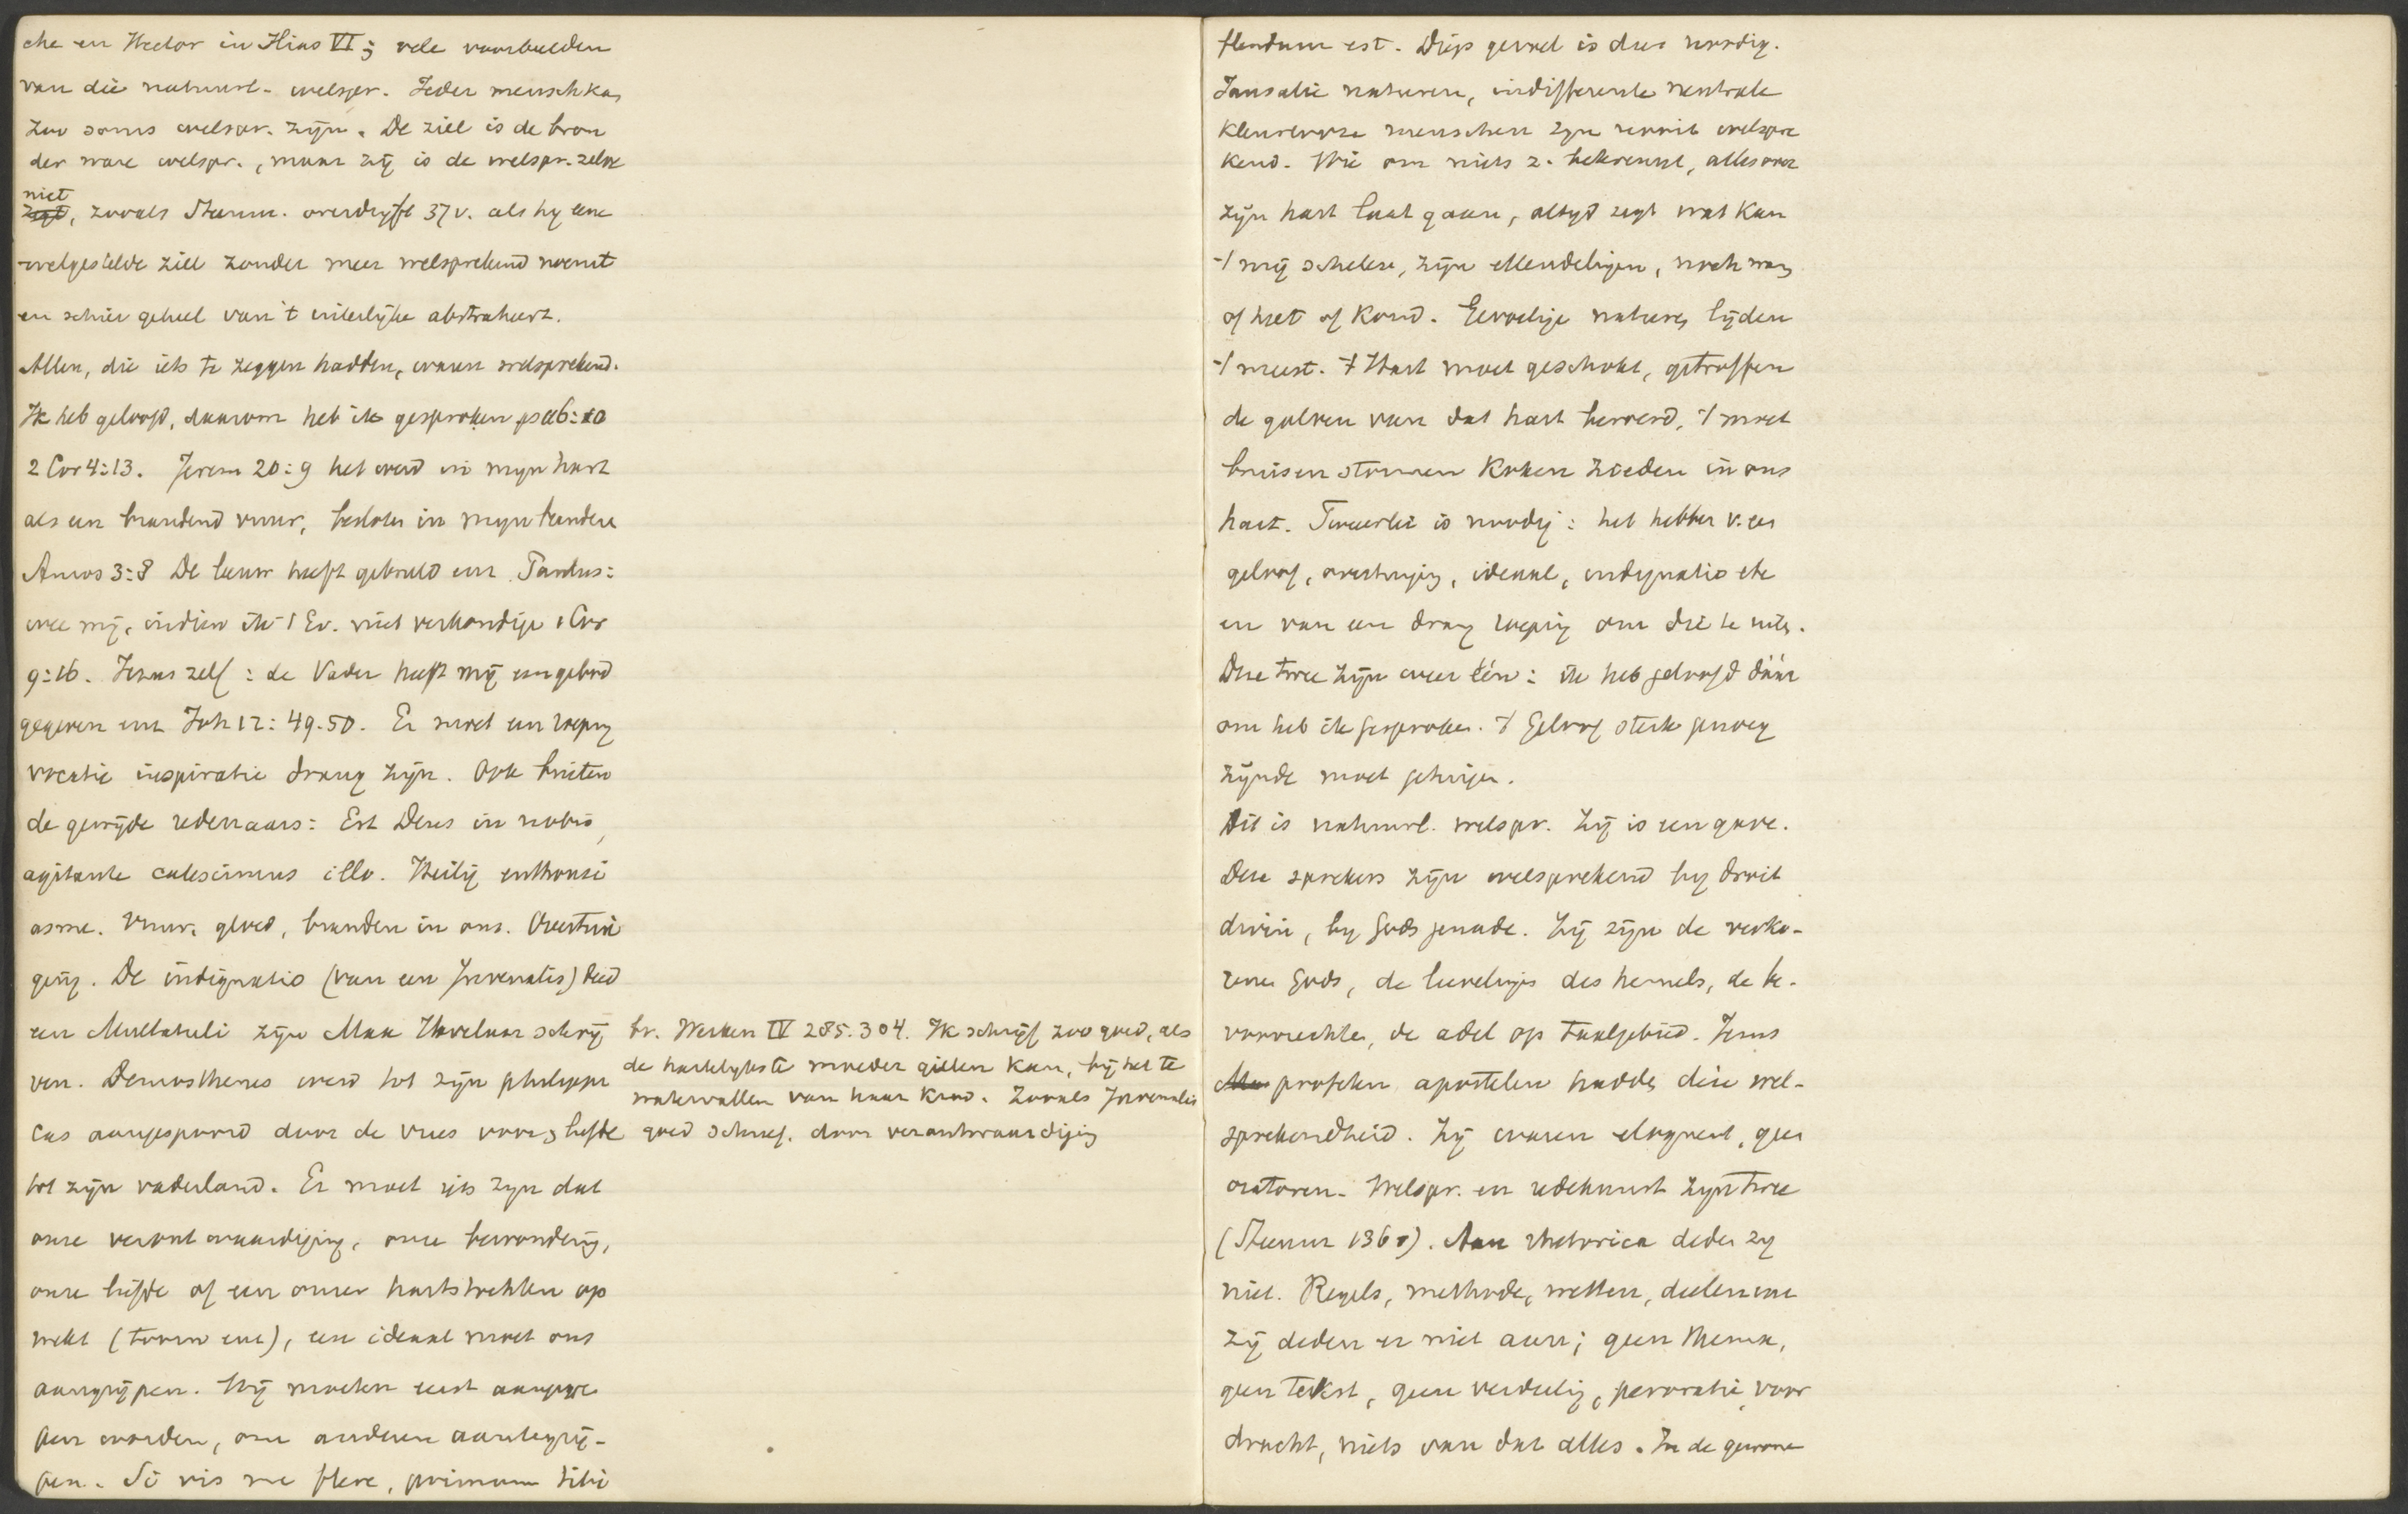 che en Hector in Ilias VI; vele voorbeelden
van die natuurl. welspr. Ieder mensch kan
zoo soms welspr. zijn. De ziel is de bron
der ware welspr., maar zij is de welspr. zelve
niet
, zooals Steunm. overdrijft 37v. als hy eene
welgestelde ziel zonder meer welsprekend noemt
en schier geheel van 't uiterlijke abstraheert.
Allen, die iets te zeggen hadden, waren welsprekend.
Ik heb geloofd, daarom heb ik gesproken ps 116:10
2 Cor 4:13. Jerem 20:9 het werd in myn hart
als een brandend vuur, besloten in myn beenderen
Amos 3:8 De leeuw heeft gebruld enz. Paulus:
wee mij, indien ik 't Ev. niet verkondige 1 Cor
9:16. Jezus zelf: de Vader heeft mij een gebod
gegeven enz Joh 12:49.50. Er moet een roeping
vocatie inspiratie drang zijn. Ook buiten
de gewijde redenaars: Est Deus in nobis,
agitante calescimus illo. Heilig enthousi
asme. Vuur, gloed, branden in ons. Overtui
ging. De indignatio (van een Juvenalis) deed
een Multatuli zijn Max Havelaar schrij
ven. Demosthenes werd tot zijn philippi
cas aangespoord door de vrees voor, liefde
tot zijn vaderland. Er moet iets zyn dat
onze verontwaardiging, onze bewondering,
onze liefde of een onzer hartstochten op
wekt (toorn enz), een ideaal moet ons
aangrijpen. Wij moeten eerst aangegre
pen worden, om anderen aantegrij-
pen. Si vis me flere, primum tibi
br. Werken IV 285.304. Ik schrijf zoo goed, als
de hartelykste moeder gillen kan, bij het te
watervallen van haar kind. Zooals Juvenalis
goed schreef. door verontwaardiging
flendum est. Diep gevoel is dus noodig.
Jansalie naturen, indifferente neutrale
kleurlooze menschen zyn nooit welspre
kend. Wie om niets z. bekreunt, alles over
zijn hart laat gaan, altyd zegt wat kan
't mij schelen, zijn ellendelingen, noch warm
of heet of koud. Gevoelige naturen lijden
't meest. 't Hart moet geschokt, getroffen
de golven van dat hart beroerd, 't moet
bruisen stormen koken zieden in ons
hart. Tweeërlei is noodig: het hebben v. een
geloof, overtuiging, ideaal, indignatio etc
en van een drang roeping om die te uiten.
Deze twee zijn weer één: ik heb geloofd dáár
om heb ik gesproken. 't Geloof sterk genoeg
zijnde moet getuigen.
Dit is natuurl. welspr. Zij is een gave.
Deze sprekers zijn welsprekend by droit
divin, by Gods genade. Zij zijn de verko-
rene Gods, de lievelingen des hemels, de be-
voorrechte, de adel op taalgebied. Jezus
profeten apostelen hadden deze wel-
sprekendheid. Zij waren eloquent, geen
oratoren. Welspr. en redekunst zyn twee
(Steunm 136v). Aan rhetorica deden zy
niet. Regels, methode, wetten, deelen enz
zij deden er niet aan; geen thema,
geen tekst, geen verdeeling, peroratie, voor
dracht, niets van dat alles. In de gewone